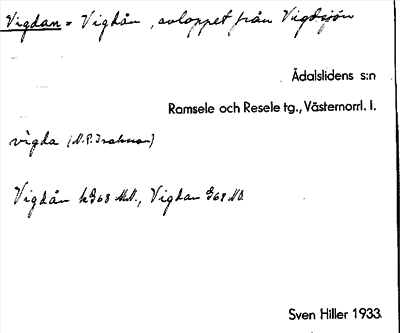 Vigdan = Vigdån, avloppet från Vigdsjön
Ådalslidens s:n
Ramsele och Resele tg., Västernorrl. l.
vigda (N.P.
Vigdån kG68 NV., Vigdan G68 NO.
Sven Hiller 1933.